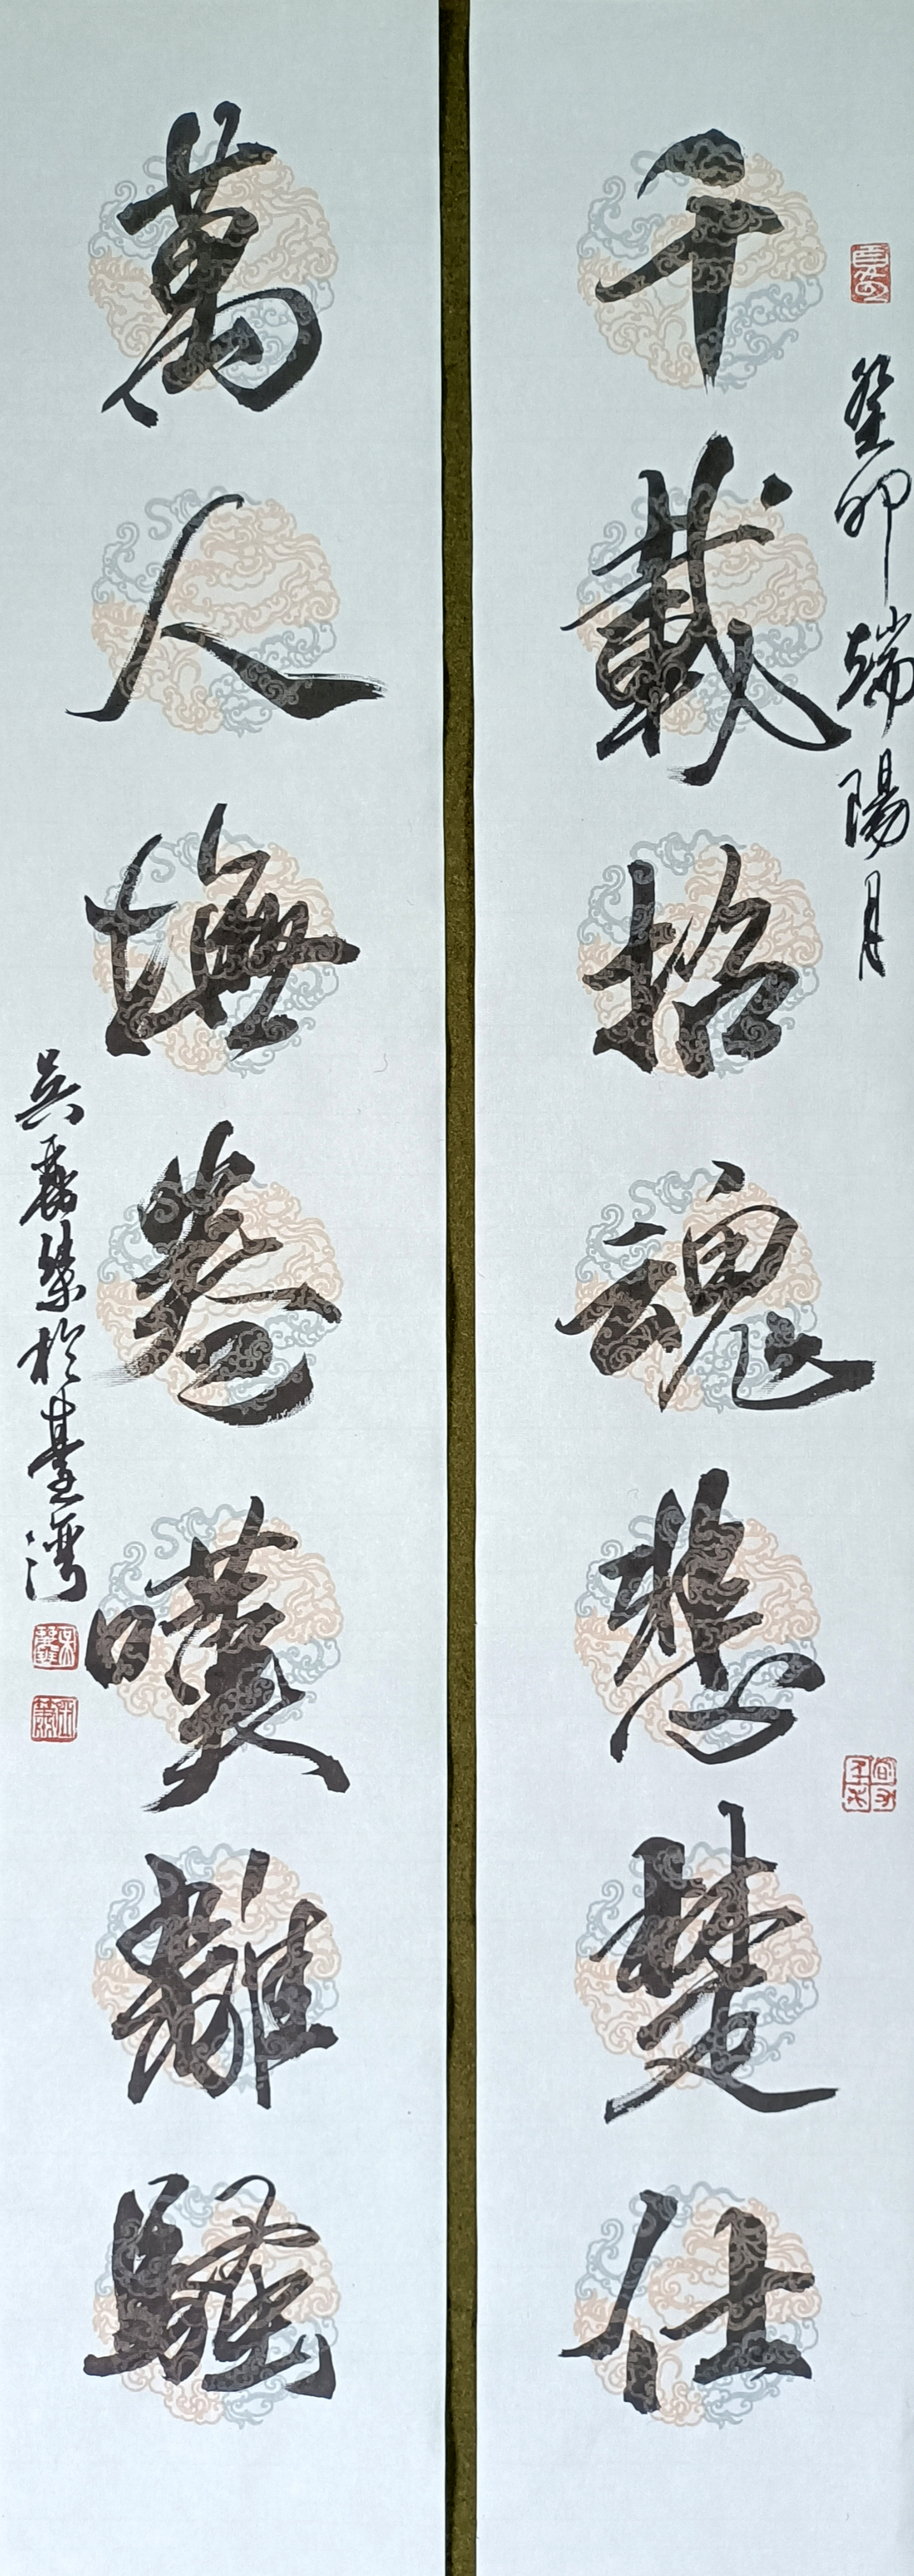 癸卯端陽月
千載招魂悲楚仕
萬人撫卷嘆離騷
吳麗於臺灣